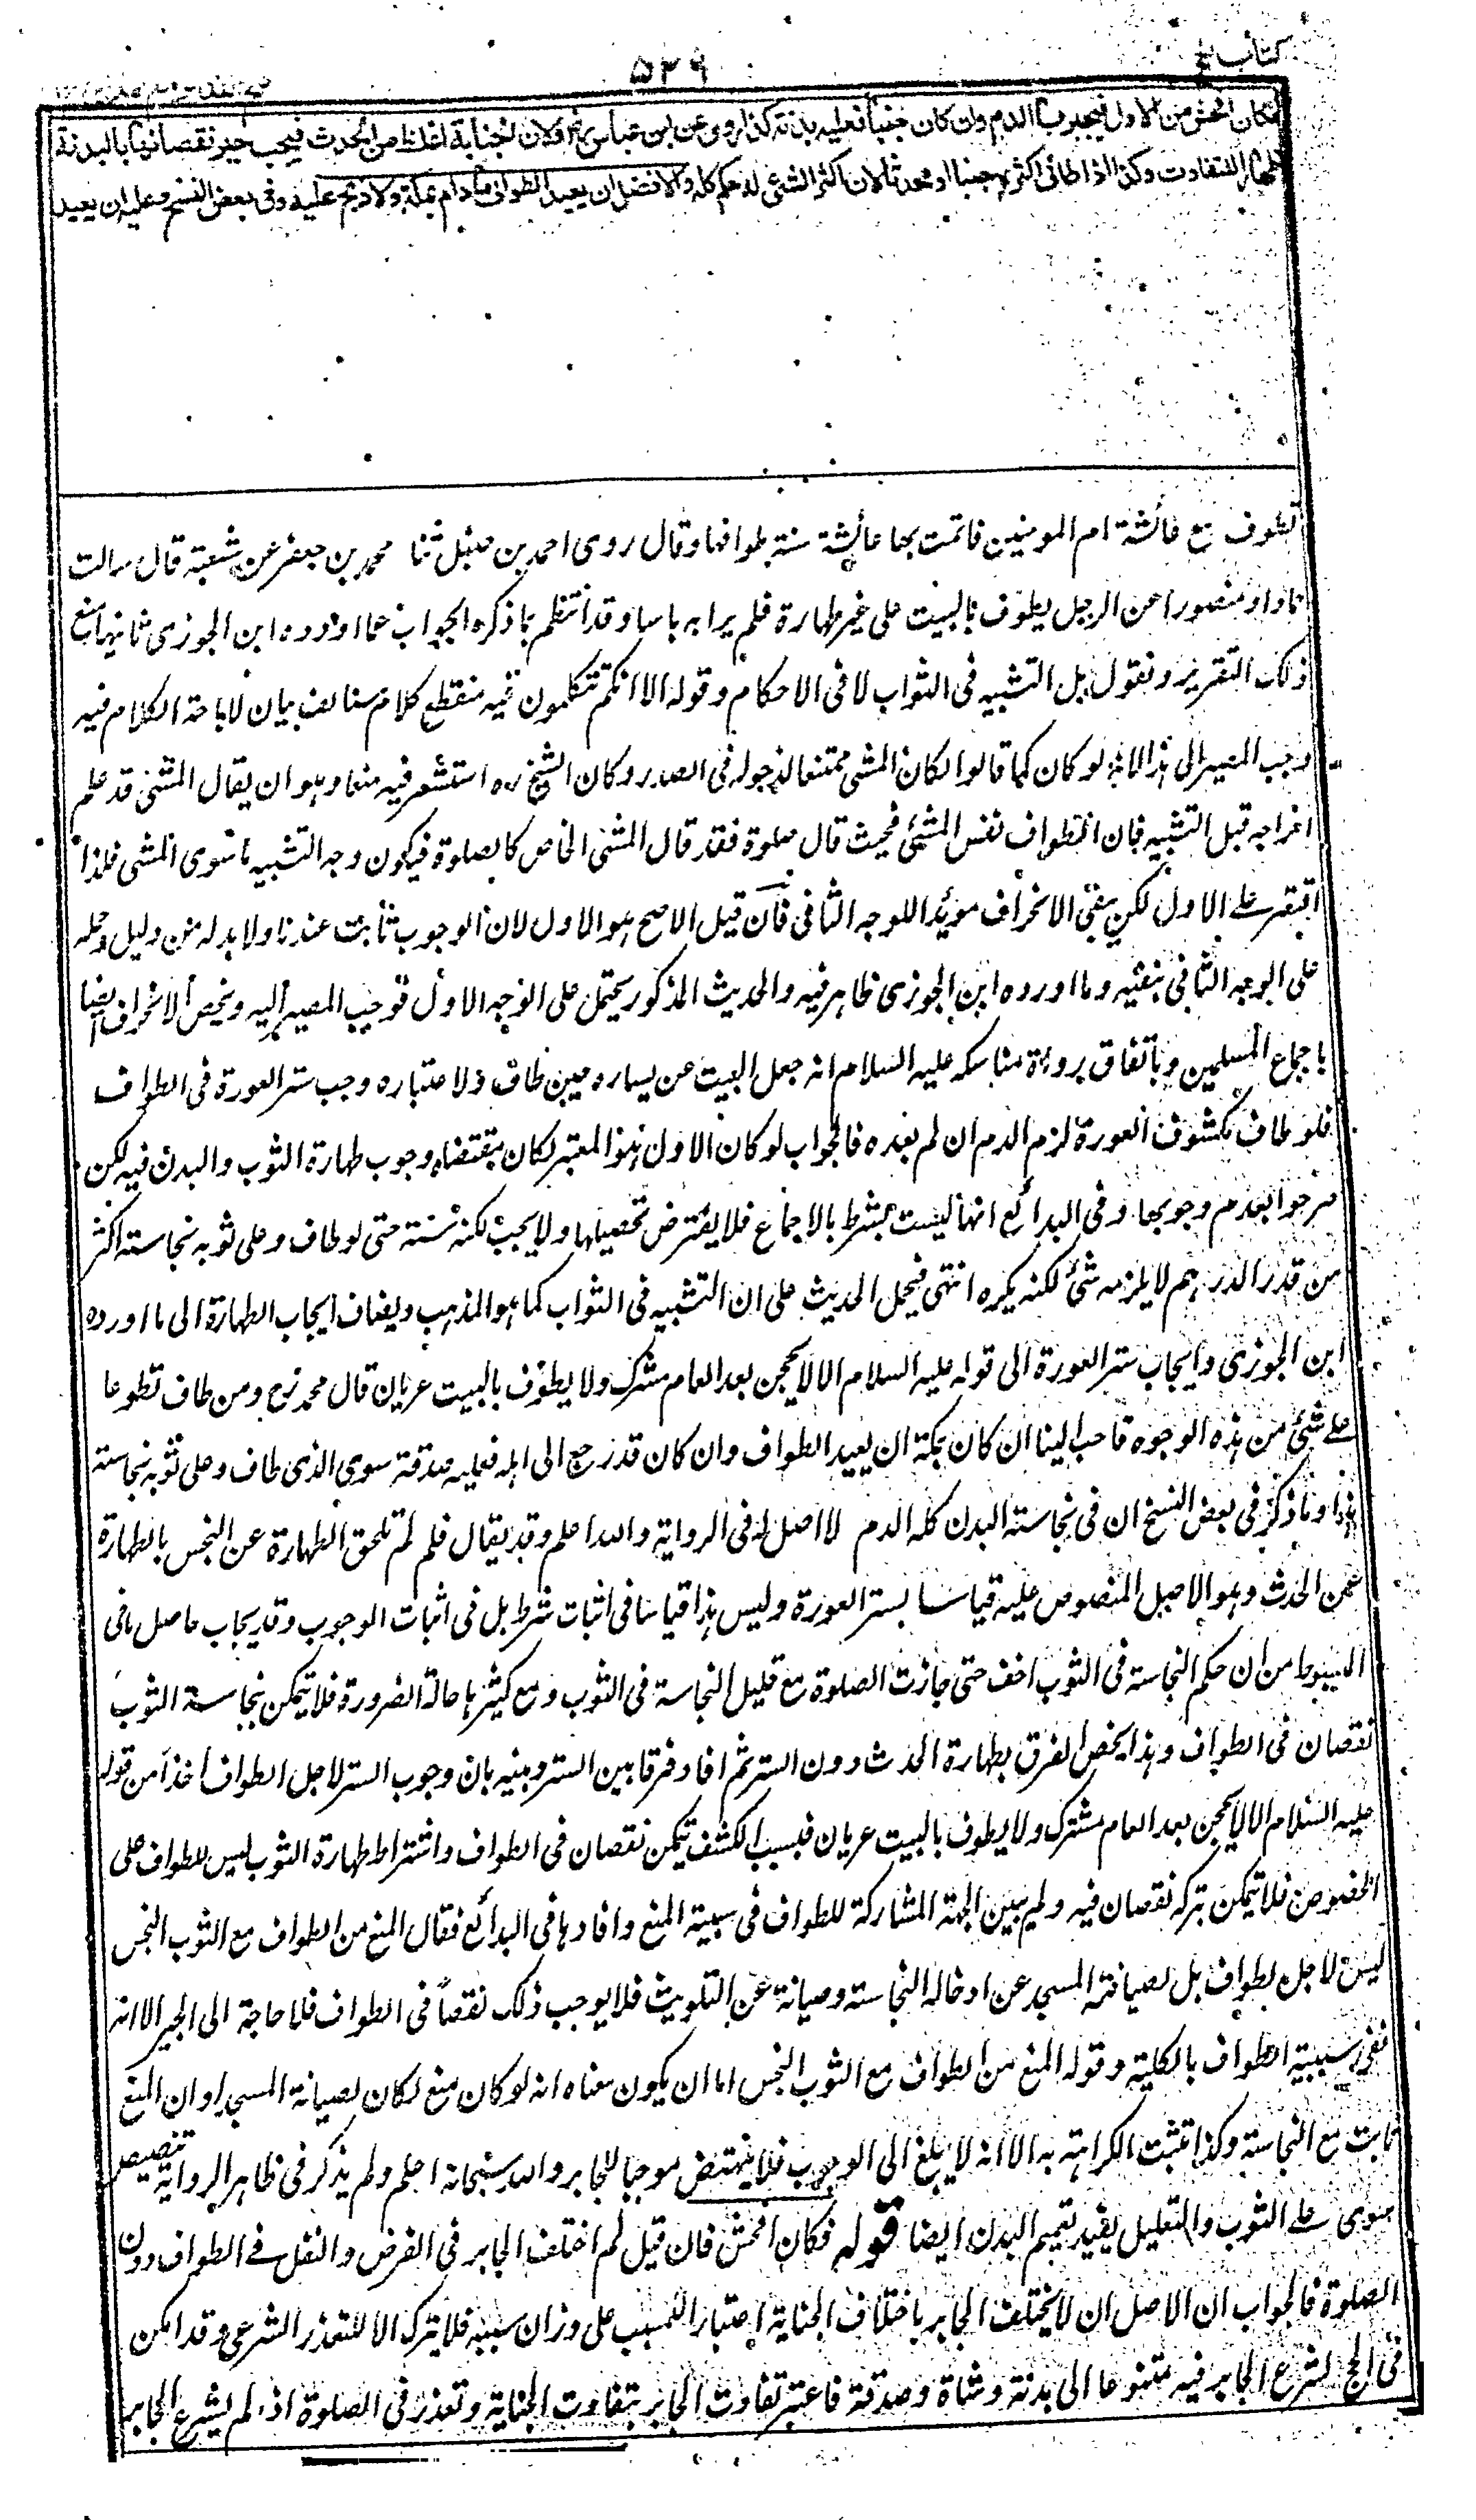 كتاب الحج
٥٢٩
فكان افحش من الاول فيجبر بالدم وان كان جنبا فعليه بدنة كذا روى عن ابن عباس رض ولان الجنابة اغلظ من الحدث فيجب جبر نقصانها بالبدنة
اظهارا للتفاوت وكذا اذا طاف اكثره جنبا او محدثا لان اكثر الشئ له حكم كله والافضل ان يعيد الطواف ما دام بمكة ولا ذبح عليه وفى بعض النسخ وعليه ان يعيد
تطوف مع عائشة ام المومنين فاتمت بها عائشة سنة طوافها وقال روى احمد بن حنبل ثنا محمد بن جعفر عن شعبة قال سالت
حمادا ومنصورا عن الرجل يطوف بالبيت على غير طهارة فلم يرا به باسا وقد انتظم ما ذكره الجواب عما اورده ابن الجوزى ثانيها منع
ذلك التقرير ونقول بل التشبيه فى الثواب لا فى الاحكام وقوله الا انكم تتكلمون فيه منقطع كلام مستانف بيان لاباحة الكلام فيه
وجب المصير الى هذا لانه لو كان كما قالوا لكان المشى ممتنعا لدخوله فى الصدر وكان الشيخ ره استشعر فيه منعا وهو ان يقال المشى قد علم
اخراجه قبل التشبيه فان الطواف نفس المشى فحيث قال صلوة فقد قال المشى الخاص كالصلوة فيكون وجه التشبيه ما سوى المشى فلذا
اقتصر على الاول لكن بقى الانحراف مويدا للوجه الثانى فان قيل الاصح هو الاول لان الوجوب ثابت عندنا ولا بد له من دليل وحمله
على الوجه الثانى ينفيه وما اورده ابن الجوزى ظاهر فيه والحديث المذكور يحتمل على الوجه الاول فوجب المصير اليه ويخص الانحراف ايضا
باجماع المسلمين وباتفاق رواة مناسكه عليه السلام انه جعل البيت عن يساره حين طاف ولاعتباره وجب ستر العورة فى الطواف
فلو طاف مكشوف العورة لزم الدم ان لم يعده فالجواب لو كان الاول هو المعتبر لكان مقتضاه وجوب طهارة الثوب والبدن فيه لكن
صرحوا بعدم وجوبها وفى البدائع انها ليست بشرط بالاجماع فلا يفترض تحصيلها ولا يجب لكنه سنة حتى لو طاف وعلى ثوبه نجاسة اكثر
من قدر الدرهم لا يلزمه شئ لكنه يكره انتهى فيحمل الحديث على ان التشبيه فى الثواب كما هو المذهب ويضاف ايجاب الطهارة الى ما اورده
ابن الجوزى وايجاب ستر العورة الى قوله عليه السلام الا لا يحجن بعد العام مشرك ولا يطوف بالبيت عريان قال محمد رح ومن طاف تطوعا
على شئ من هذه الوجوه فاحب الينا ان كان بمكة ان يعيد الطواف وان كان قد رجع الى اهله فعليه صدقة سوى الذى طاف وعلى ثوبه نجاسة
هذا وما ذكر فى بعض النسخ ان فى نجاسة البدن كله الدم لا اصل له فى الرواية والله اعلم وقد يقال فلم لم تلحق الطهارة عن النجس بالطهارة
عن الحدث وهو الاصل المنصوص عليه قياسا بستر العورة وليس هذا قياسا فى اثبات شرط بل فى اثبات الوجوب وقد يجاب حاصل ما فى
المبسوط من ان حكم النجاسة فى الثوب اخف حتى جازت الصلوة مع قليل النجاسة فى الثوب ومع كثيرها حالة الضرورة فلا يتمكن بنجاسة الثوب
نقصان فى الطواف وهذا يخص الفرق بطهارة الحدث دون الستر ثم افاد فرقا بين الستر وبينه بان وجوب الستر لاجل الطواف اخذا من قوله
عليه السلام الا لا يحجن بعد العام مشرك ولا يطوف بالبيت عريان فبسبب الكشف يتمكن نقصان فى الطواف واشتراط طهارة الثوب ليس للطواف على
الخصوص فلا يتمكن بتركه نقصان فيه ولم يبين الجهة المشاركة للطواف فى سببية المنع وافادها فى البدائع فقال المنع من الطواف مع الثوب النجس
ليس لاجل الطواف بل لصيانة المسجد عن ادخال النجاسة وصيانة عن التلويث فلا يوجب ذلك نقصا فى الطواف فلا حاجة الى الجبر الا انه
نفى سببية الطواف بالكلية وقوله المنع من الطواف مع الثوب النجس اما ان يكون معناه انه لو كان منع لكان لصيانة المسجد او ان المنع
ثابت مع النجاسة وكذا تثبت الكراهة به الا انه لا يبلغ الى الوجوب فلا ينتهض موجبا للجابر والله سبحانه اعلم ولم يذكر فى ظاهر الرواية تنصيص
سوى على الثوب والتعليل يفيد تعميم البدن ايضا قوله فكان افحش فان قيل لم اختلف الجابر فى الفرض والنفل فى الطواف دون
الصلوة فالجواب ان الاصل ان لا يختلف الجابر باختلاف الجناية اعتبار المسبب على وزان سببه فلا يترك الا للتعذر الشرعى وقد امكن
فى الحج لشرع الجابر فيه متنوعا الى بدنة وشاة وصدقة فاعتبر تفاوت الجابر بتفاوت الجناية وتعذر فى الصلوة اذ لم يشرع الجابر